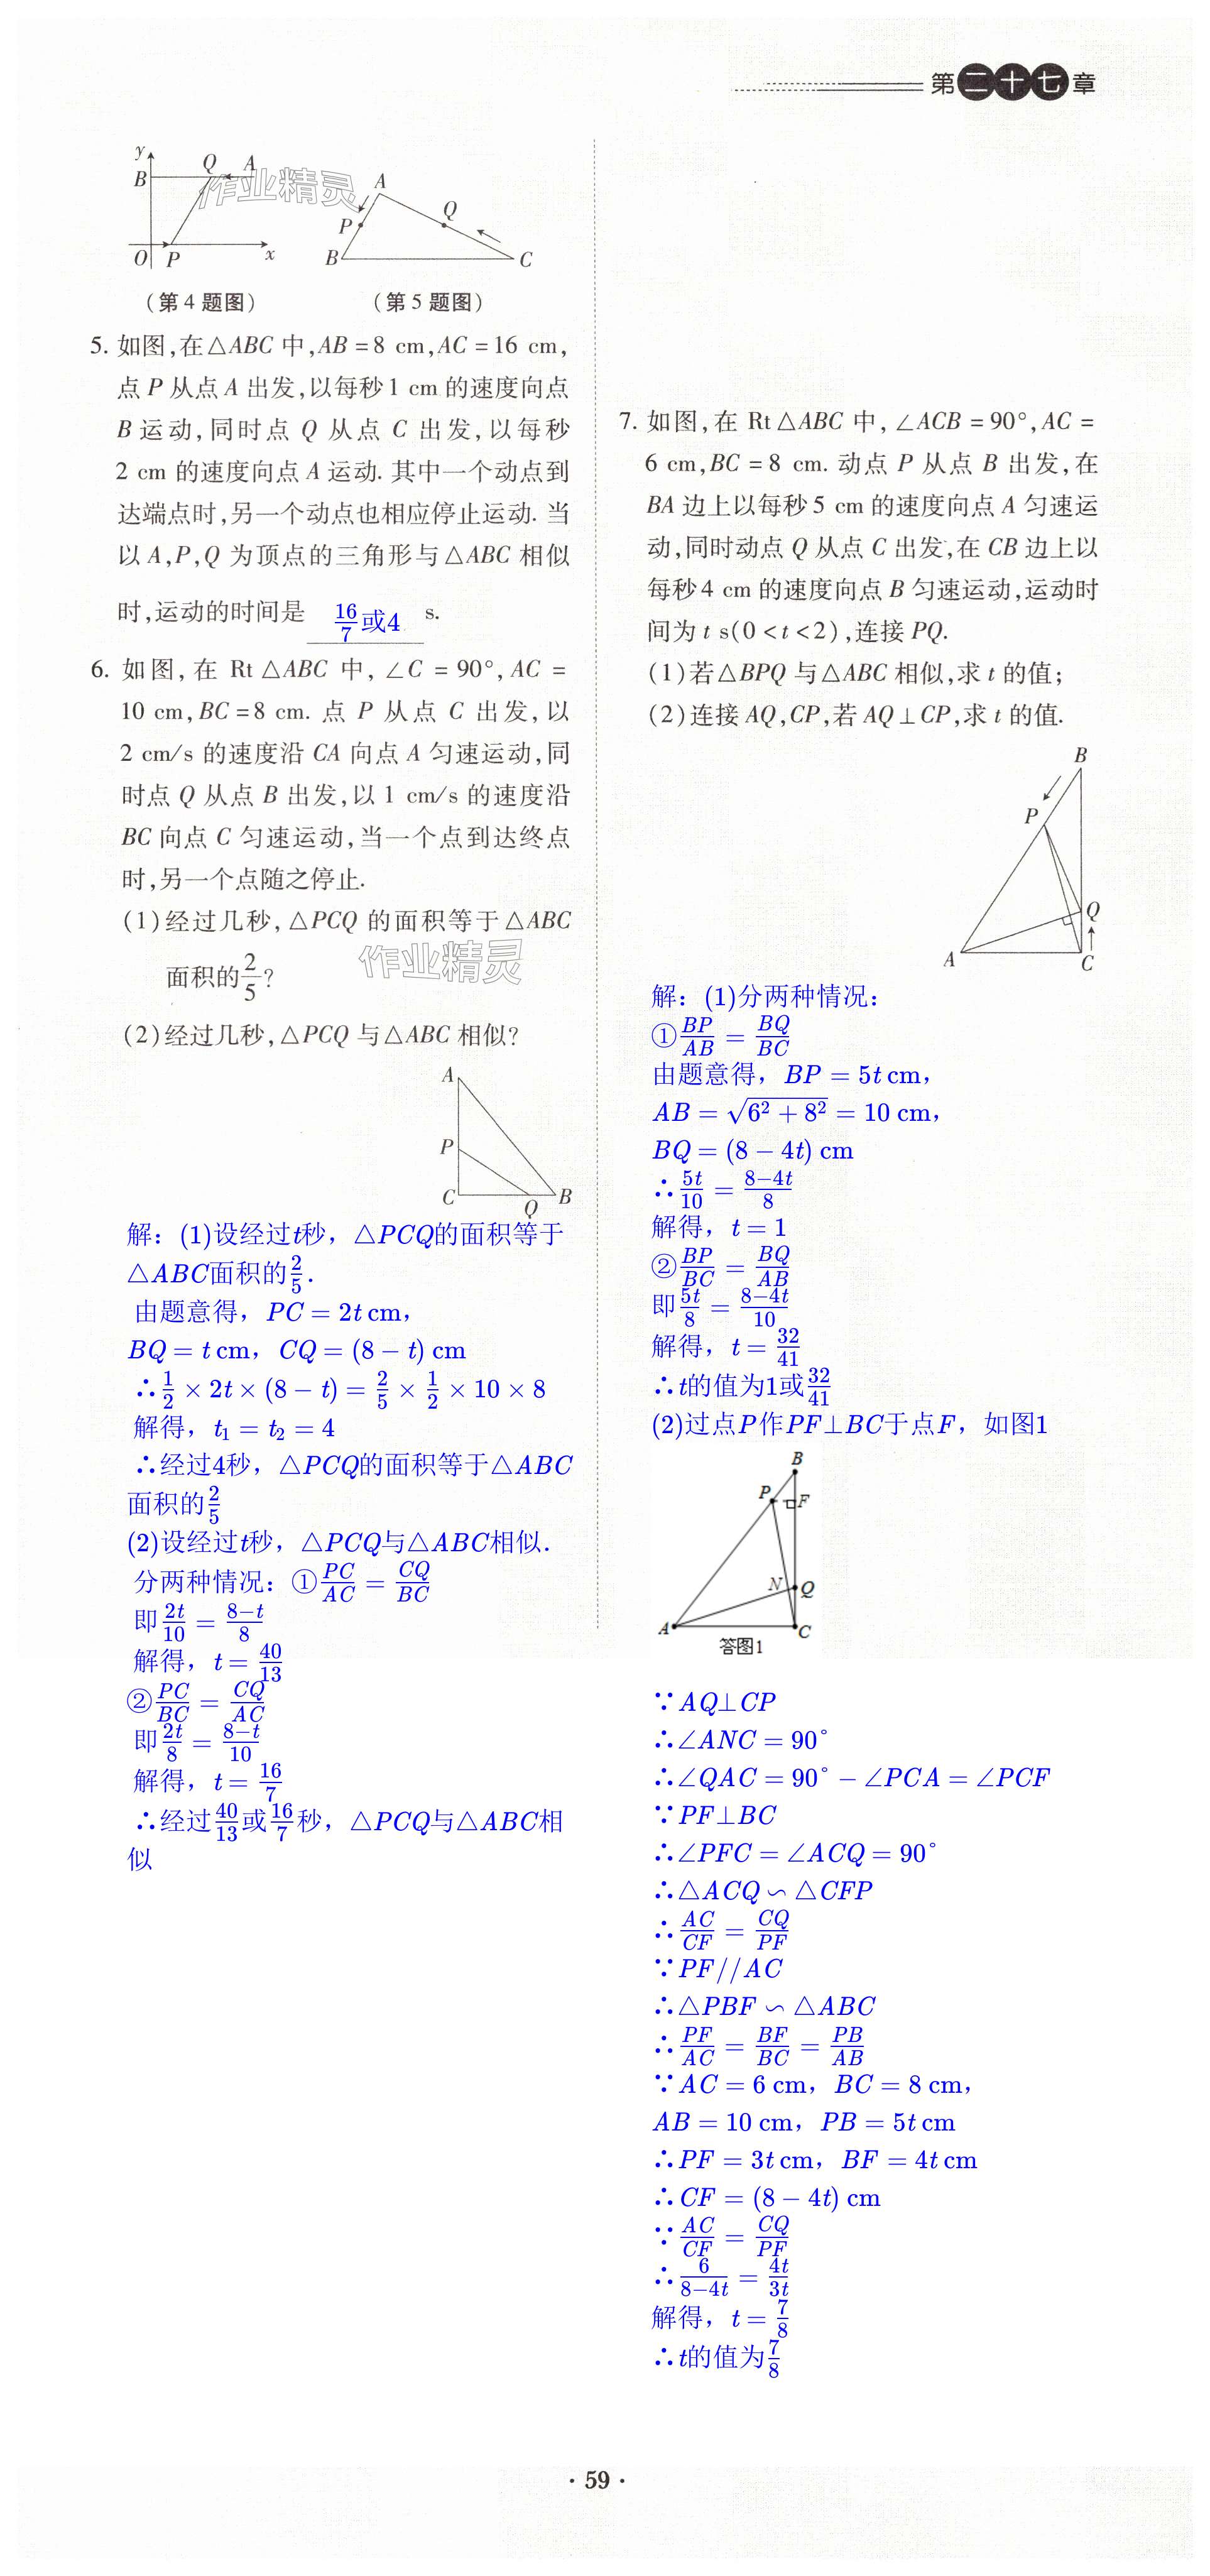 第二十七章
y
B
Q
A
O
P
x
(第4题图)
A
P
Q
B
C
(第5题图)
作业精灵
5. 如图,在△ABC 中,AB=8 cm,AC=16 cm,
点 P 从点 A 出发,以每秒1 cm 的速度向点
B 运动,同时点 Q 从点 C 出发,以每秒
2 cm 的速度向点 A 运动. 其中一个动点到
达端点时,另一个动点也相应停止运动. 当
以 A,P,Q 为顶点的三角形与△ABC 相似
时,运动的时间是 16/7或4 s.
6. 如图,在 Rt△ABC 中,∠C=90°,AC=
10 cm,BC=8 cm. 点 P 从点 C 出发,以
2 cm/s 的速度沿 CA 向点 A 匀速运动,同
时点 Q 从点 B 出发,以1 cm/s 的速度沿
BC 向点 C 匀速运动,当一个点到达终点
时,另一个点随之停止.
(1)经过几秒,△PCQ 的面积等于△ABC
面积的2/5?
作业精灵
(2)经过几秒,△PCQ 与△ABC 相似?
A
P
C
Q
B
解：(1)设经过t秒，△PCQ的面积等于
△ABC面积的2/5.
由题意得，PC=2t cm，
BQ=t cm，CQ=(8-t) cm
∴1/2×2t×(8-t)=2/5×1/2×10×8
解得，t₁=t₂=4
∴经过4秒，△PCQ的面积等于△ABC
面积的2/5
(2)设经过t秒，△PCQ与△ABC相似.
分两种情况：①PC/AC=CQ/BC
即2t/10=8-t/8
解得，t=40/13
②PC/BC=CQ/AC
即2t/8=8-t/10
解得，t=16/7
∴经过40/13或16/7秒，△PCQ与△ABC相
似
7. 如图,在 Rt△ABC 中,∠ACB=90°,AC=
6 cm,BC=8 cm. 动点 P 从点 B 出发,在
BA 边上以每秒5 cm 的速度向点 A 匀速运
动,同时动点 Q 从点 C 出发,在 CB 边上以
每秒4 cm 的速度向点 B 匀速运动,运动时
间为 t s(0<t<2),连接 PQ.
(1)若△BPQ 与△ABC 相似,求 t 的值;
(2)连接 AQ,CP,若 AQ⊥CP,求 t 的值.
B
P
Q
A
C
解：(1)分两种情况：
①BP/AB=BQ/BC
由题意得，BP=5t cm，
AB=√(6²+8²)=10 cm，
BQ=(8-4t) cm
∴5t/10=8-4t/8
解得，t=1
②BP/BC=BQ/AB
即5t/8=8-4t/10
解得，t=32/41
∴t的值为1或32/41
(2)过点P作PF⊥BC于点F，如图1
B
P
F
N
Q
A
C
答图1
∵AQ⊥CP
∴∠ANC=90°
∴∠QAC=90°-∠PCA=∠PCF
∵PF⊥BC
∴∠PFC=∠ACQ=90°
∴△ACQ∽△CFP
∴AC/CF=CQ/PF
∵PF//AC
∴△PBF∽△ABC
∴PF/AC=BF/BC=PB/AB
∵AC=6 cm，BC=8 cm，
AB=10 cm，PB=5t cm
∴PF=3t cm，BF=4t cm
∴CF=(8-4t) cm
∵AC/CF=CQ/PF
∴6/8-4t=4t/3t
解得，t=7/8
∴t的值为7/8
·59·